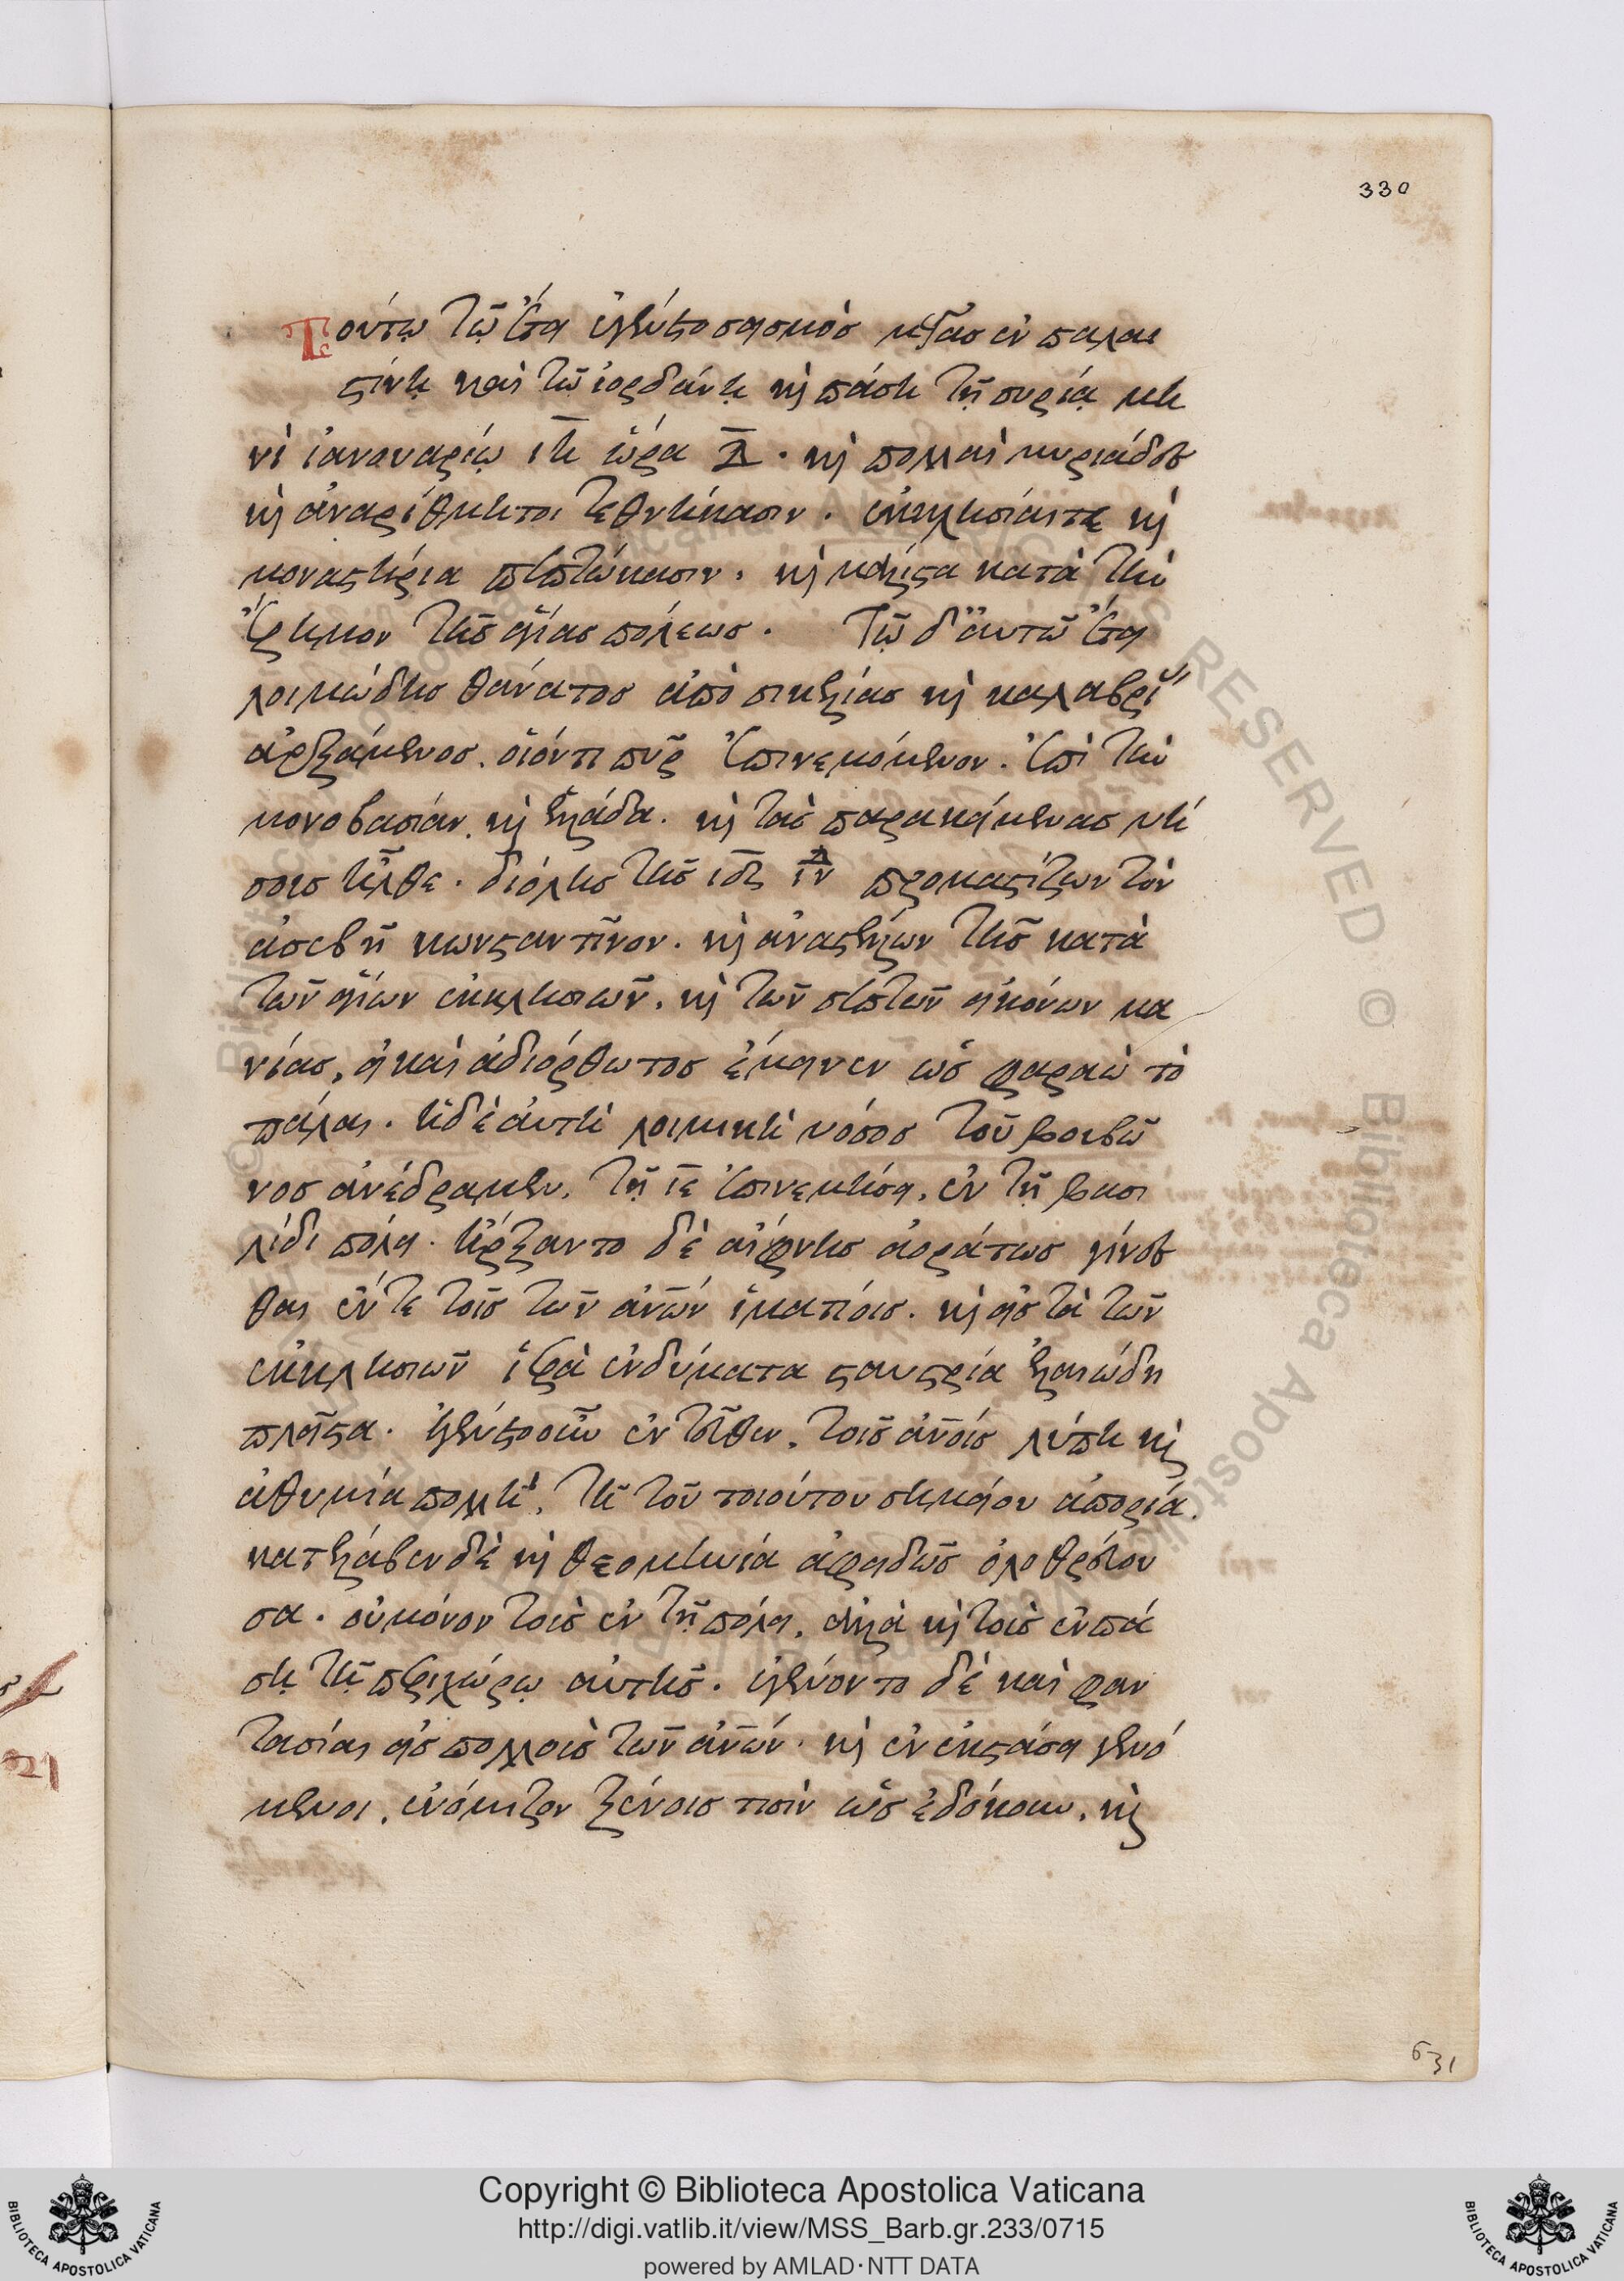 330
Τούτῳ τῷ ἔτει ἐγένετο σεισμὸς μέγας ἐν παλαι
στίνῃ καὶ τῷ ἰορδάνῃ κὶ πάσῃ τῇ συρίᾳ μη
νὶ ἰανουαρίῳ ιη ὥρα Δ. κὶ πολλαὶ μυριάδες
κὶ ἀναρίθμητοι τεθνήκασιν. ἐκκλησίαιτε κὶ
μοναστήρια πεπτώκασιν. κὶ μάλιστα κατὰ τὴν
ἔρημον τῆς ἁγίας πόλεως. Τῷ δ' αὐτῷ ἔτει
λοιμώδης θάνατος ἀπὸ σικελίας κὶ καλαβρί
ἀρξάμενος. οἷόντι πῦρ ἐπινεμόμενον. ἐπὶ τὴν
μονοβασίαν. κὶ ἑλλάδα. κὶ τὰς παρακειμένας νή
σοις ἦλθε. διόλης τῆς ιδς ἰν προμαστίζων τὸν
ἀσεβῆ κωνσταντῖνον. κὶ ἀναστέλλων τῆς κατὰ
τῶν ἁγίων ἐκκλησιῶν. κὶ τῶν σεπτῶν εἰκόνων μα
νίας, εἰ καὶ ἀδιόρθωτος ἔμεινεν ὡς φαραὼ τὸ
πάλαι. ἡ δὲ αὐτὴ λοιμικὴ νόσος τοῦ βουβῶ
νος ἀνέδραμεν. τῇ ιε ἐπινεμήσει. ἐν τῇ βασι
λίδι πόλει. ἤρξαντο δὲ αἴφνης ἀοράτως γίνεσ
θαι ἔν τε τοῖς τῶν ἀνῶν ἱματίοις. κὶ εἰς τὰ τῶν
ἐκκλησιῶν ἱερὰ ἐνδύματα σταυρία ἐλαιώδη
πλεῖστα. ἐγένετο οὖν ἐντεῦθεν. τοῖς ἀνοῖς λύπη κὶ
ἀθυμία πολλὴ. τῇ τοῦ τοιούτου σημείου ἀπορίᾳ.
κατέλαβεν δὲ κὶ θεομηνία ἀφειδῶς ὀλοθρεύου
σα. οὐ μόνον τοῖς ἐν τῇ πόλει. ἀλλὰ κὶ τοῖς ἐν πά
σῃ τῇ περιχώρῳ αὐτῆς. ἐγένοντο δὲ καὶ φαν
τασίαι εἰς πολλοὺς τῶν ἀνῶν. κὶ ἐν ἐκστάσει γενό
μενοι. ἐνόμιζον ξένοις τισὶν ὡς ἐδόκουν. κὶ
631
Copyright © Biblioteca Apostolica Vaticana
http://digi.vatlib.it/view/MSS_Barb.gr.233/0715
powered by AMLAD·NTT DATA
BIBLIOTECA APOSTOLICA VATICANA
BIBLIOTECA APOSTOLICA VATICANA